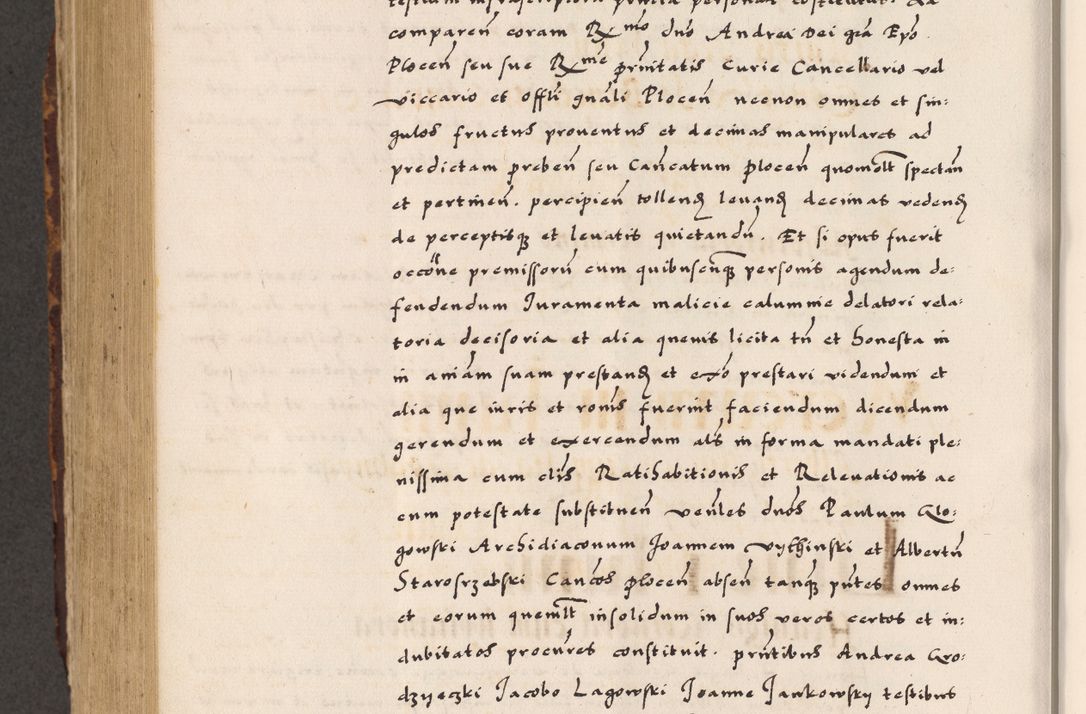 testium infrascriptorum pñcia personar constitutus. Ad
comparen coram Rxmo dno Andrea Dei gra Epo
Plocen seu sue Rxme prnitatis Curie Cancellario vel
viccario et offli gnali Plocen necnon omnes et sin:
gulos fructus prouentus et decimas manipulares ad
predictam preben seu Cancatum plocen quomolt spectan
et pertinen. percipien tollend leuand decimas vedend
de perceptisq et leuatis quietandu. Et si opus fuerit
occone premissoru cum quibuscunq personis agendum de:
fendendum Iuramenta malicie calumnie delatori rela:
toria decisoria et alia queuis licita tn et honesta in
in aniam suam prestand et exo prestari videndum et
alia que iuris et ronis fuerint faciendum dicendum
gerendum et exercendum als in forma mandati ple:
nissima cum clis Ratihabitionis et Releuationis ac
cum potestate substituen venles dnos Paulum Glo:
gowski Archidiaconum Joannem vythinski et Albertu
Starosrzebski Cancos plocen absen tanq pntes omnes
et eorum quemlt insolidum in suos veros certos et in:
dubitatos procures constituit. prntibus Andrea Gro:
dzyeczki Jacobo Lagowski Joanne Jankowsky testibus